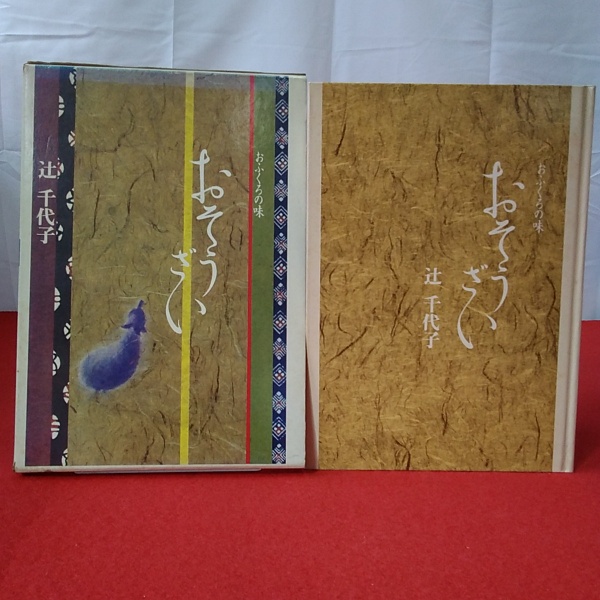 おふくろの味
おそうざい
辻 千代子
おふくろの味
おそうざい
辻 千代子